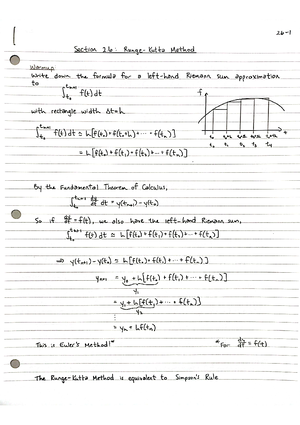 26-1
Section 26: Runge-Kutta Method
Warmup
Write down the formula for a left-hand Riemann sum approximation
to
∫_{t₀}^{tₙ₊₁} f(t) dt
with rectangle width Δt=h
∫_{t₀}^{tₙ₊₁} f(t) dt ≈ h[f(t₀)+f(t₀+h)+⋯+f(tₙ)]
= h[f(t₀)+f(t₁)+f(t₂)+⋯+f(tₙ)]
By the Fundamental Theorem of Calculus,
∫_{t₀}^{tₙ₊₁} dy/dt dt = y(tₙ₊₁)-y(t₀)
So if dy/dt = f(t), we also have the left-hand Riemann sum,
∫_{t₀}^{tₙ₊₁} f(t) dt ≈ h[f(t₀)+f(t₁)+f(t₂)+⋯+f(tₙ)]
⇒ y(tₙ₊₁)-y(t₀) ≈ h[f(t₀)+f(t₁)+⋯+f(tₙ)]
yₙ₊₁ = y₀+h[f(t₀)+f(t₁)+⋯+f(tₙ)]
y₁
= y₁+h[f(t₁)+⋯+f(tₙ)]
y₂
⋮
= yₙ+hf(tₙ)
This is Euler's Method!*
*For dy/dt = f(t)
The Runge-Kutta Method is equivalent to Simpson's Rule